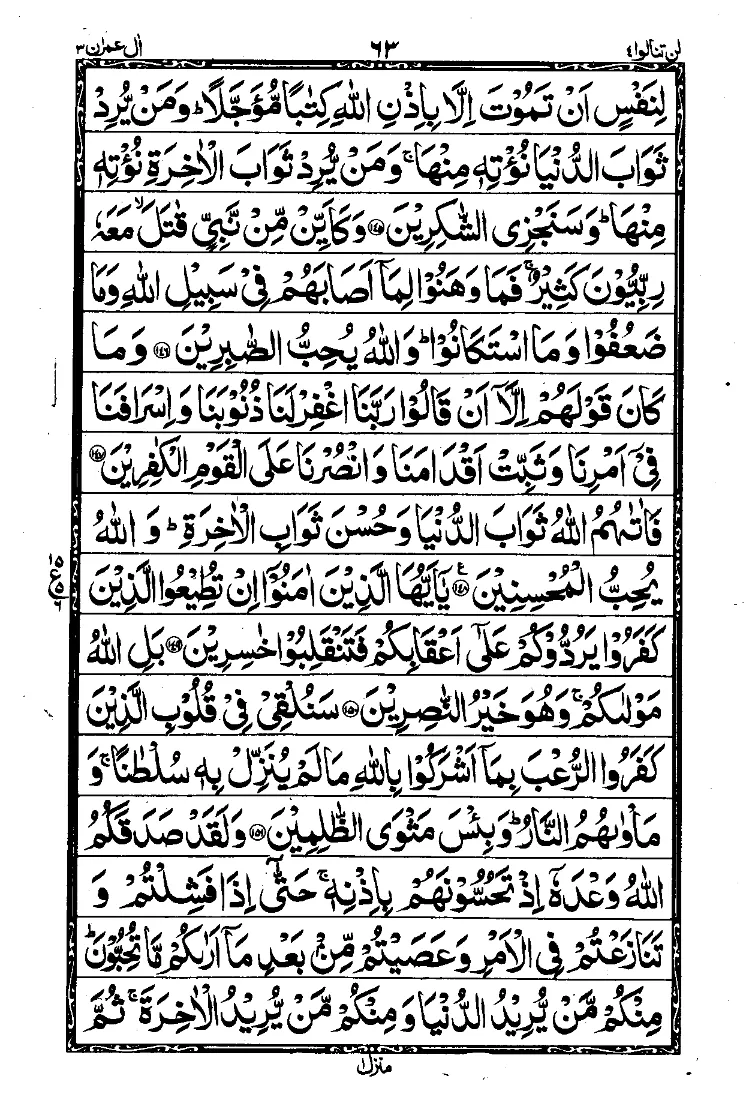 لن تنالوا ٤ ٦٣ اٰل عمرٰن ٣
لِنَفْسٍ اَنْ تَمُوْتَ اِلَّا بِاِذْنِ اللّٰهِ كِتٰبًا مُّؤَجَّلًا ؕ وَمَنْ يُّرِدْ
ثَوَابَ الدُّنْيَا نُؤْتِهٖ مِنْهَا ۚ وَمَنْ يُّرِدْ ثَوَابَ الْاٰخِرَةِ نُؤْتِهٖ
مِنْهَا ؕ وَسَنَجْزِى الشّٰكِرِيْنَ ﴿۱۴۵﴾ وَكَاَيِّنْ مِّنْ نَّبِيٍّ قٰتَلَ ۙ مَعَهٗ
رِبِّيُّوْنَ كَثِيْرٌ ۚ فَمَا وَهَنُوْا لِمَاۤ اَصَابَهُمْ فِيْ سَبِيْلِ اللّٰهِ وَمَا
ضَعُفُوْا وَمَا اسْتَكَانُوْا ؕ وَاللّٰهُ يُحِبُّ الصّٰبِرِيْنَ ﴿۱۴۶﴾ وَمَا
كَانَ قَوْلَهُمْ اِلَّاۤ اَنْ قَالُوْا رَبَّنَا اغْفِرْ لَنَا ذُنُوْبَنَا وَاِسْرَافَنَا
فِيْۤ اَمْرِنَا وَثَبِّتْ اَقْدَامَنَا وَانْصُرْنَا عَلَى الْقَوْمِ الْكٰفِرِيْنَ ﴿۱۴۷﴾
فَاٰتٰىهُمُ اللّٰهُ ثَوَابَ الدُّنْيَا وَحُسْنَ ثَوَابِ الْاٰخِرَةِ ؕ وَ اللّٰهُ
يُحِبُّ الْمُحْسِنِيْنَ ﴿۱۴۸﴾ ع يٰۤاَيُّهَا الَّذِيْنَ اٰمَنُوْۤا اِنْ تُطِيْعُوا الَّذِيْنَ
كَفَرُوْا يَرُدُّوْكُمْ عَلٰۤى اَعْقَابِكُمْ فَتَنْقَلِبُوْا خٰسِرِيْنَ ﴿۱۴۹﴾ بَلِ اللّٰهُ
مَوْلٰىكُمْ ۚ وَهُوَ خَيْرُ النّٰصِرِيْنَ ﴿۱۵۰﴾ سَنُلْقِيْ فِيْ قُلُوْبِ الَّذِيْنَ
كَفَرُوا الرُّعْبَ بِمَاۤ اَشْرَكُوْا بِاللّٰهِ مَا لَمْ يُنَزِّلْ بِهٖ سُلْطٰنًا ۚ وَ
مَاْوٰىهُمُ النَّارُ ؕ وَبِئْسَ مَثْوَى الظّٰلِمِيْنَ ﴿۱۵۱﴾ وَلَقَدْ صَدَقَكُمُ
اللّٰهُ وَعْدَهٗۤ اِذْ تَحُسُّوْنَهُمْ بِاِذْنِهٖ ۚ حَتّٰۤى اِذَا فَشِلْتُمْ وَ
تَنَازَعْتُمْ فِى الْاَمْرِ وَعَصَيْتُمْ مِّنْۢ بَعْدِ مَاۤ اَرٰىكُمْ مَّا تُحِبُّوْنَ ؕ
مِنْكُمْ مَّنْ يُّرِيْدُ الدُّنْيَا وَمِنْكُمْ مَّنْ يُّرِيْدُ الْاٰخِرَةَ ۚ ثُمَّ
منزل ۱